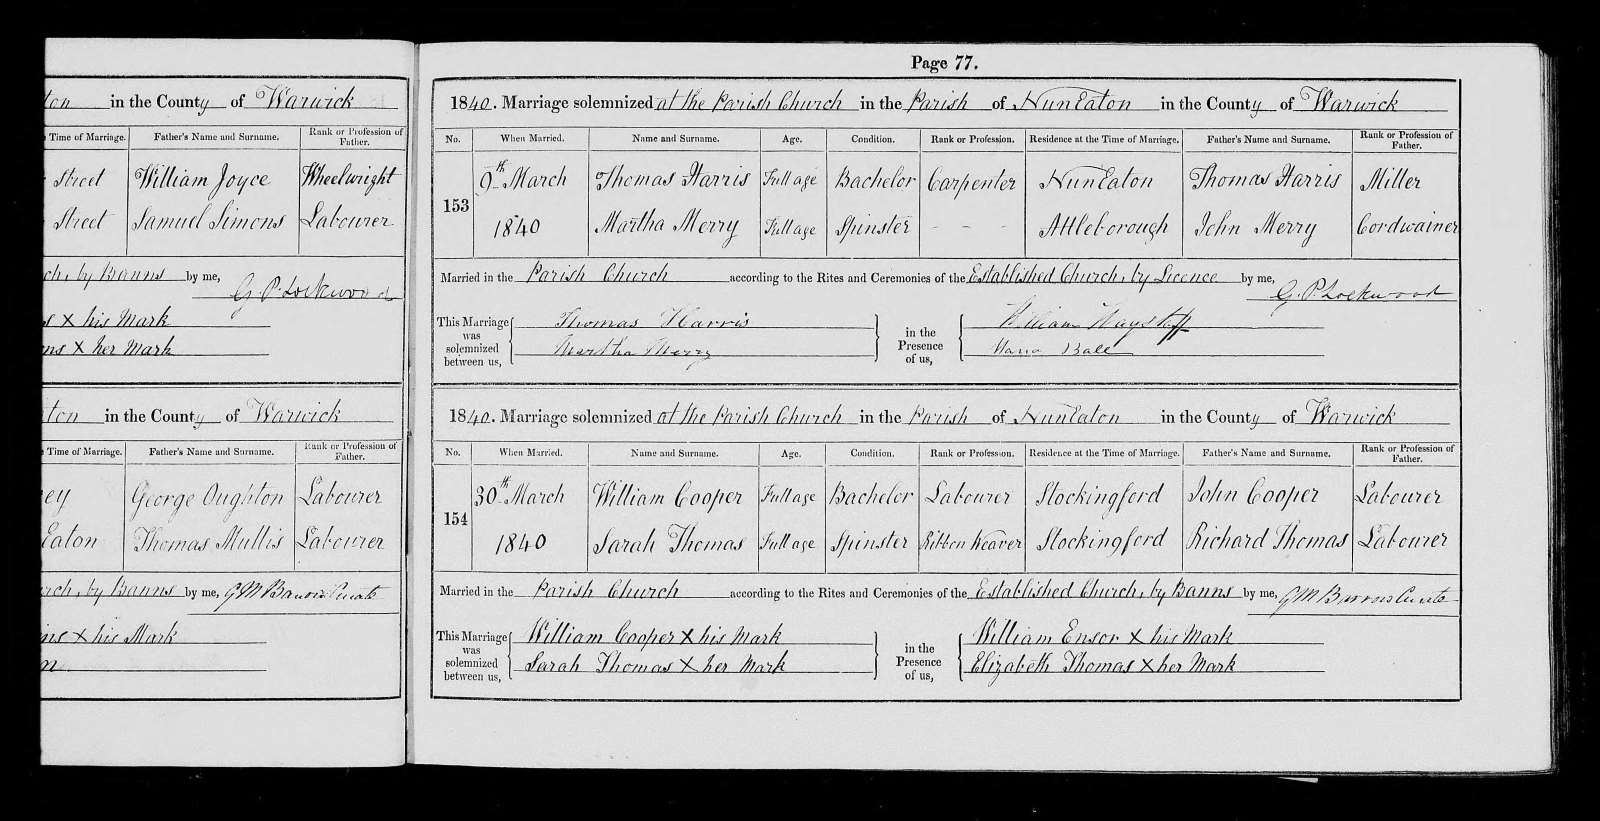 ton in the County of Warwick
Time of Marriage. Father's Name and Surname. Rank or Profession of Father.
Street William Joyce Wheelwright
Street Samuel Simons Labourer
ch, by Banns by me,
G. P. Lockwood
s X his Mark
ns X her Mark
aton in the County of Warwick
Time of Marriage. Father's Name and Surname. Rank or Profession of Father.
ey George Oughton Labourer
Eaton Thomas Mullis Labourer
urch, by Banns by me, G M Barrow Curate
ins X his Mark
n
Page 77.
1840. Marriage solemnized at the Parish Church in the Parish of NunEaton in the County of Warwick
No. When Married. Name and Surname. Age. Condition. Rank or Profession. Residence at the Time of Marriage. Father's Name and Surname. Rank or Profession of Father.
9th March Thomas Harris Full age Bachelor Carpenter NunEaton Thomas Harris Miller
153
1840 Martha Merry Full age Spinster - - - Attleborough John Merry Cordwainer
Married in the Parish Church according to the Rites and Ceremonies of the Established Church, by Licence by me,
G. P. Lockwood
This Marriage was solemnized between us,
Thomas Harris
Martha Merry
in the Presence of us,
William
Ball
1840. Marriage solemnized at the Parish Church in the Parish of NunEaton in the County of Warwick
No. When Married. Name and Surname. Age. Condition. Rank or Profession. Residence at the Time of Marriage. Father's Name and Surname. Rank or Profession of Father.
30th March William Cooper Full age Bachelor Labourer Stockingford John Cooper Labourer
154
1840 Sarah Thomas Full age Spinster Ribbon Weaver Stockingford Richard Thomas Labourer
Married in the Parish Church according to the Rites and Ceremonies of the Established Church, by Banns by me, G M Barrow Curate
This Marriage was solemnized between us,
William Cooper X his Mark
Sarah Thomas X her Mark
in the Presence of us,
William Ensor X his Mark
Elizabeth Thomas X her Mark